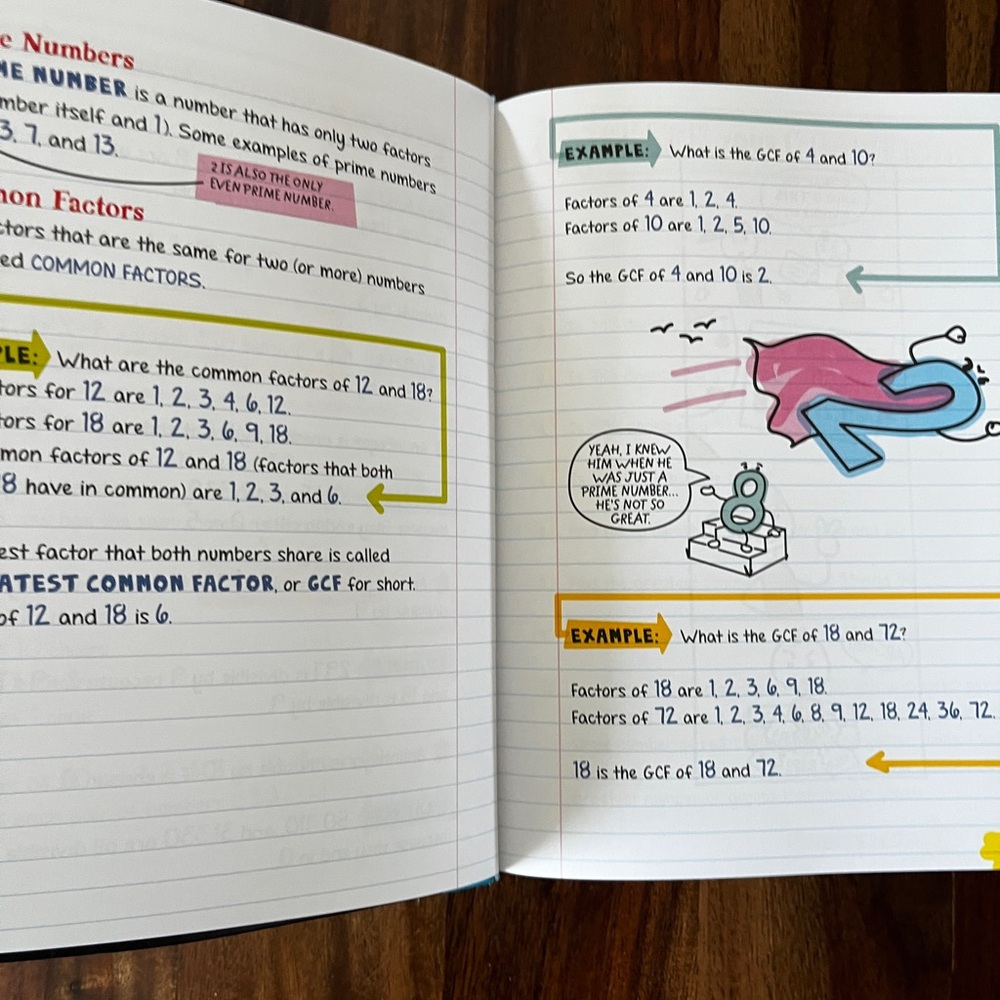 e Numbers
ME NUMBER is a number that has only two factors
mber itself and 1). Some examples of prime numbers
3, 7, and 13.
2 IS ALSO THE ONLY
EVEN PRIME NUMBER.
mon Factors
ctors that are the same for two (or more) numbers
ed COMMON FACTORS.
PLE: What are the common factors of 12 and 18?
tors for 12 are 1, 2, 3, 4, 6, 12.
tors for 18 are 1, 2, 3, 6, 9, 18.
mon factors of 12 and 18 (factors that both
8 have in common) are 1, 2, 3, and 6.
est factor that both numbers share is called
ATEST COMMON FACTOR, or GCF for short.
of 12 and 18 is 6.
EXAMPLE: What is the GCF of 4 and 10?
Factors of 4 are 1, 2, 4.
Factors of 10 are 1, 2, 5, 10.
So the GCF of 4 and 10 is 2.
2
YEAH, I KNEW
HIM WHEN HE
WAS JUST A
PRIME NUMBER...
HE'S NOT SO
GREAT.
8
EXAMPLE: What is the GCF of 18 and 72?
Factors of 18 are 1, 2, 3, 6, 9, 18.
Factors of 72 are 1, 2, 3, 4, 6, 8, 9, 12, 18, 24, 36, 72.
18 is the GCF of 18 and 72.